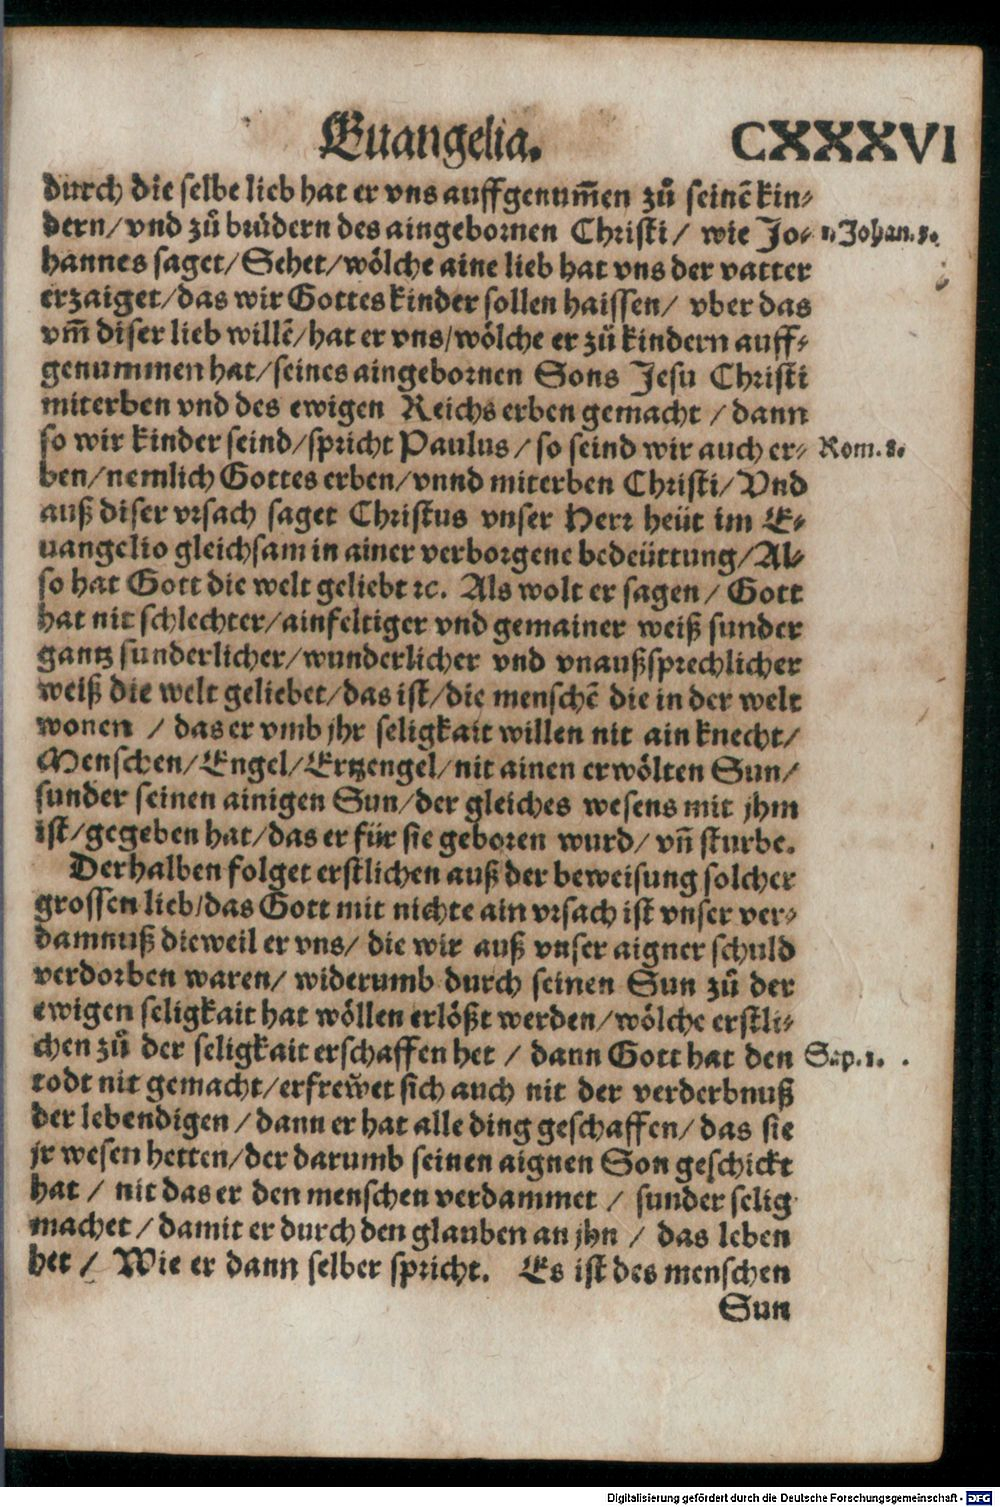 Euangelia. CXXXVI
durch die selbe lieb hat er vns auffgenum̃en zů seinẽ kin⸗
dern/ vnd zů brüdern des aingebornen Christi/ wie Jo⸗ 1. Johan. 3.
hannes saget/ Sehet/ wölche aine lieb hat vns der vatter
erzaiget/ das wir Gottes kinder sollen haissen/ vber das
vm̃ diser lieb willẽ/ hat er vns/ wölche er zů kindern auff⸗
genummen hat/ seines aingebornen Sons Jesu Christi
miterben vnd des ewigen Reichs erben gemacht / dann
so wir kinder seind/ spricht Paulus/ so seind wir auch er⸗ Rom. 8.
ben/ nemlich Gottes erben/ vnnd miterben Christi/ Vnd
auß diser vrsach saget Christus vnser Herr heüt im E⸗
uangelio gleichsam in ainer verborgene bedeüttung/ Al⸗
so hat Gott die welt geliebt ꝛc. Als wolt er sagen/ Gott
hat nit schlechter/ ainfeltiger vnd gemainer weiß sunder
gantz sunderlicher/ wunderlicher vnd vnaußsprechlicher
weiß die welt geliebet/ das ist/ die menschẽ die in der welt
wonen / das er vmb jhr seligkait willen nit ain knecht/
Menschen/ Engel/ Ertzengel/ nit ainen erwölten Sun/
sunder seinen ainigen Sun/ der gleiches wesens mit jhm
ist/ gegeben hat/ das er für sie geboren wurd/ vñ sturbe.
Derhalben folget erstlichen auß der beweisung solcher
grossen lieb/ das Gott mit nichte ain vrsach ist vnser ver⸗
damnuß dieweil er vns/ die wir auß vnser aigner schuld
verdorben waren/ widerumb durch seinen Sun zů der
ewigen seligkait hat wöllen erlößt werden/ wölche erstli⸗
chen zů der seligkait erschaffen het / dann Gott hat den Sap. 1.
todt nit gemacht/ erfreẘet sich auch nit der verderbnuß
der lebendigen / dann er hat alle ding geschaffen/ das sie
jr wesen hetten/ der darumb seinen aignen Son geschickt
hat / nit das er den menschen verdammet / sunder selig
machet / damit er durch den glauben an jhn / das leben
het / Wie er dann selber spricht. Es ist des menschen
Sun
Digitalisierung gefördert durch die Deutsche Forschungsgemeinschaft - DFG